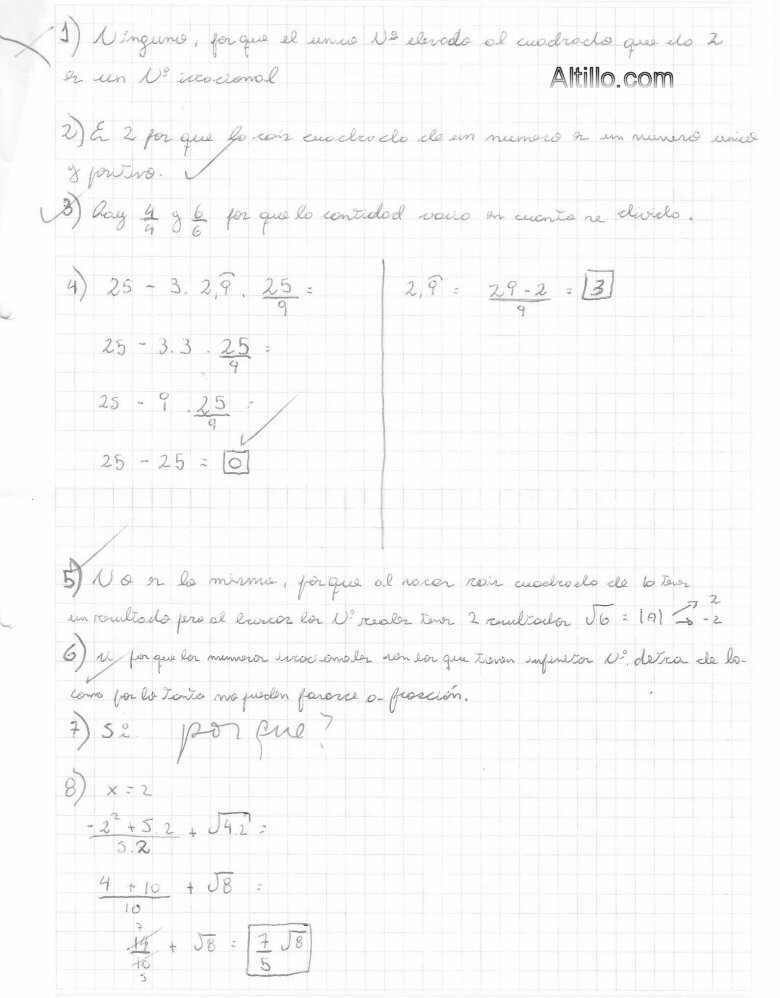 1) Ninguno, porque el unico Nº elevado al cuadrado que da 2
es un Nº irracional
Altillo.com
2) Es 2 por que la raiz cuadrada de un numero es un numero unico
y positivo.
3) hay 4/4 y 6/6 por que la cantidad varia en cuanto se divida.
4) 25 - 3. 2,9̂ . 25/9 =
2,9̂ = 29-2/9 = 3
25 - 3.3 . 25/9 =
25 - 9 . 25/9 =
25 - 25 = 0
5) No es lo mismo, porque al sacar raiz cuadrada de 10 tenes
un resultado pero al buscar los Nº reales tenes 2 resultados √6 = |A| 2 -2
6) si porque los numeros irracionales son los que tienen infinitos Nº detras de la
coma por lo tanto no pueden pasarce a fracción.
7) Si porque?
8) x = 2
-2² + 5.2/5.2 + √4.2 =
4 + 10/10 + √8 =
7 14/10 5 + √8 = 7/5 √8